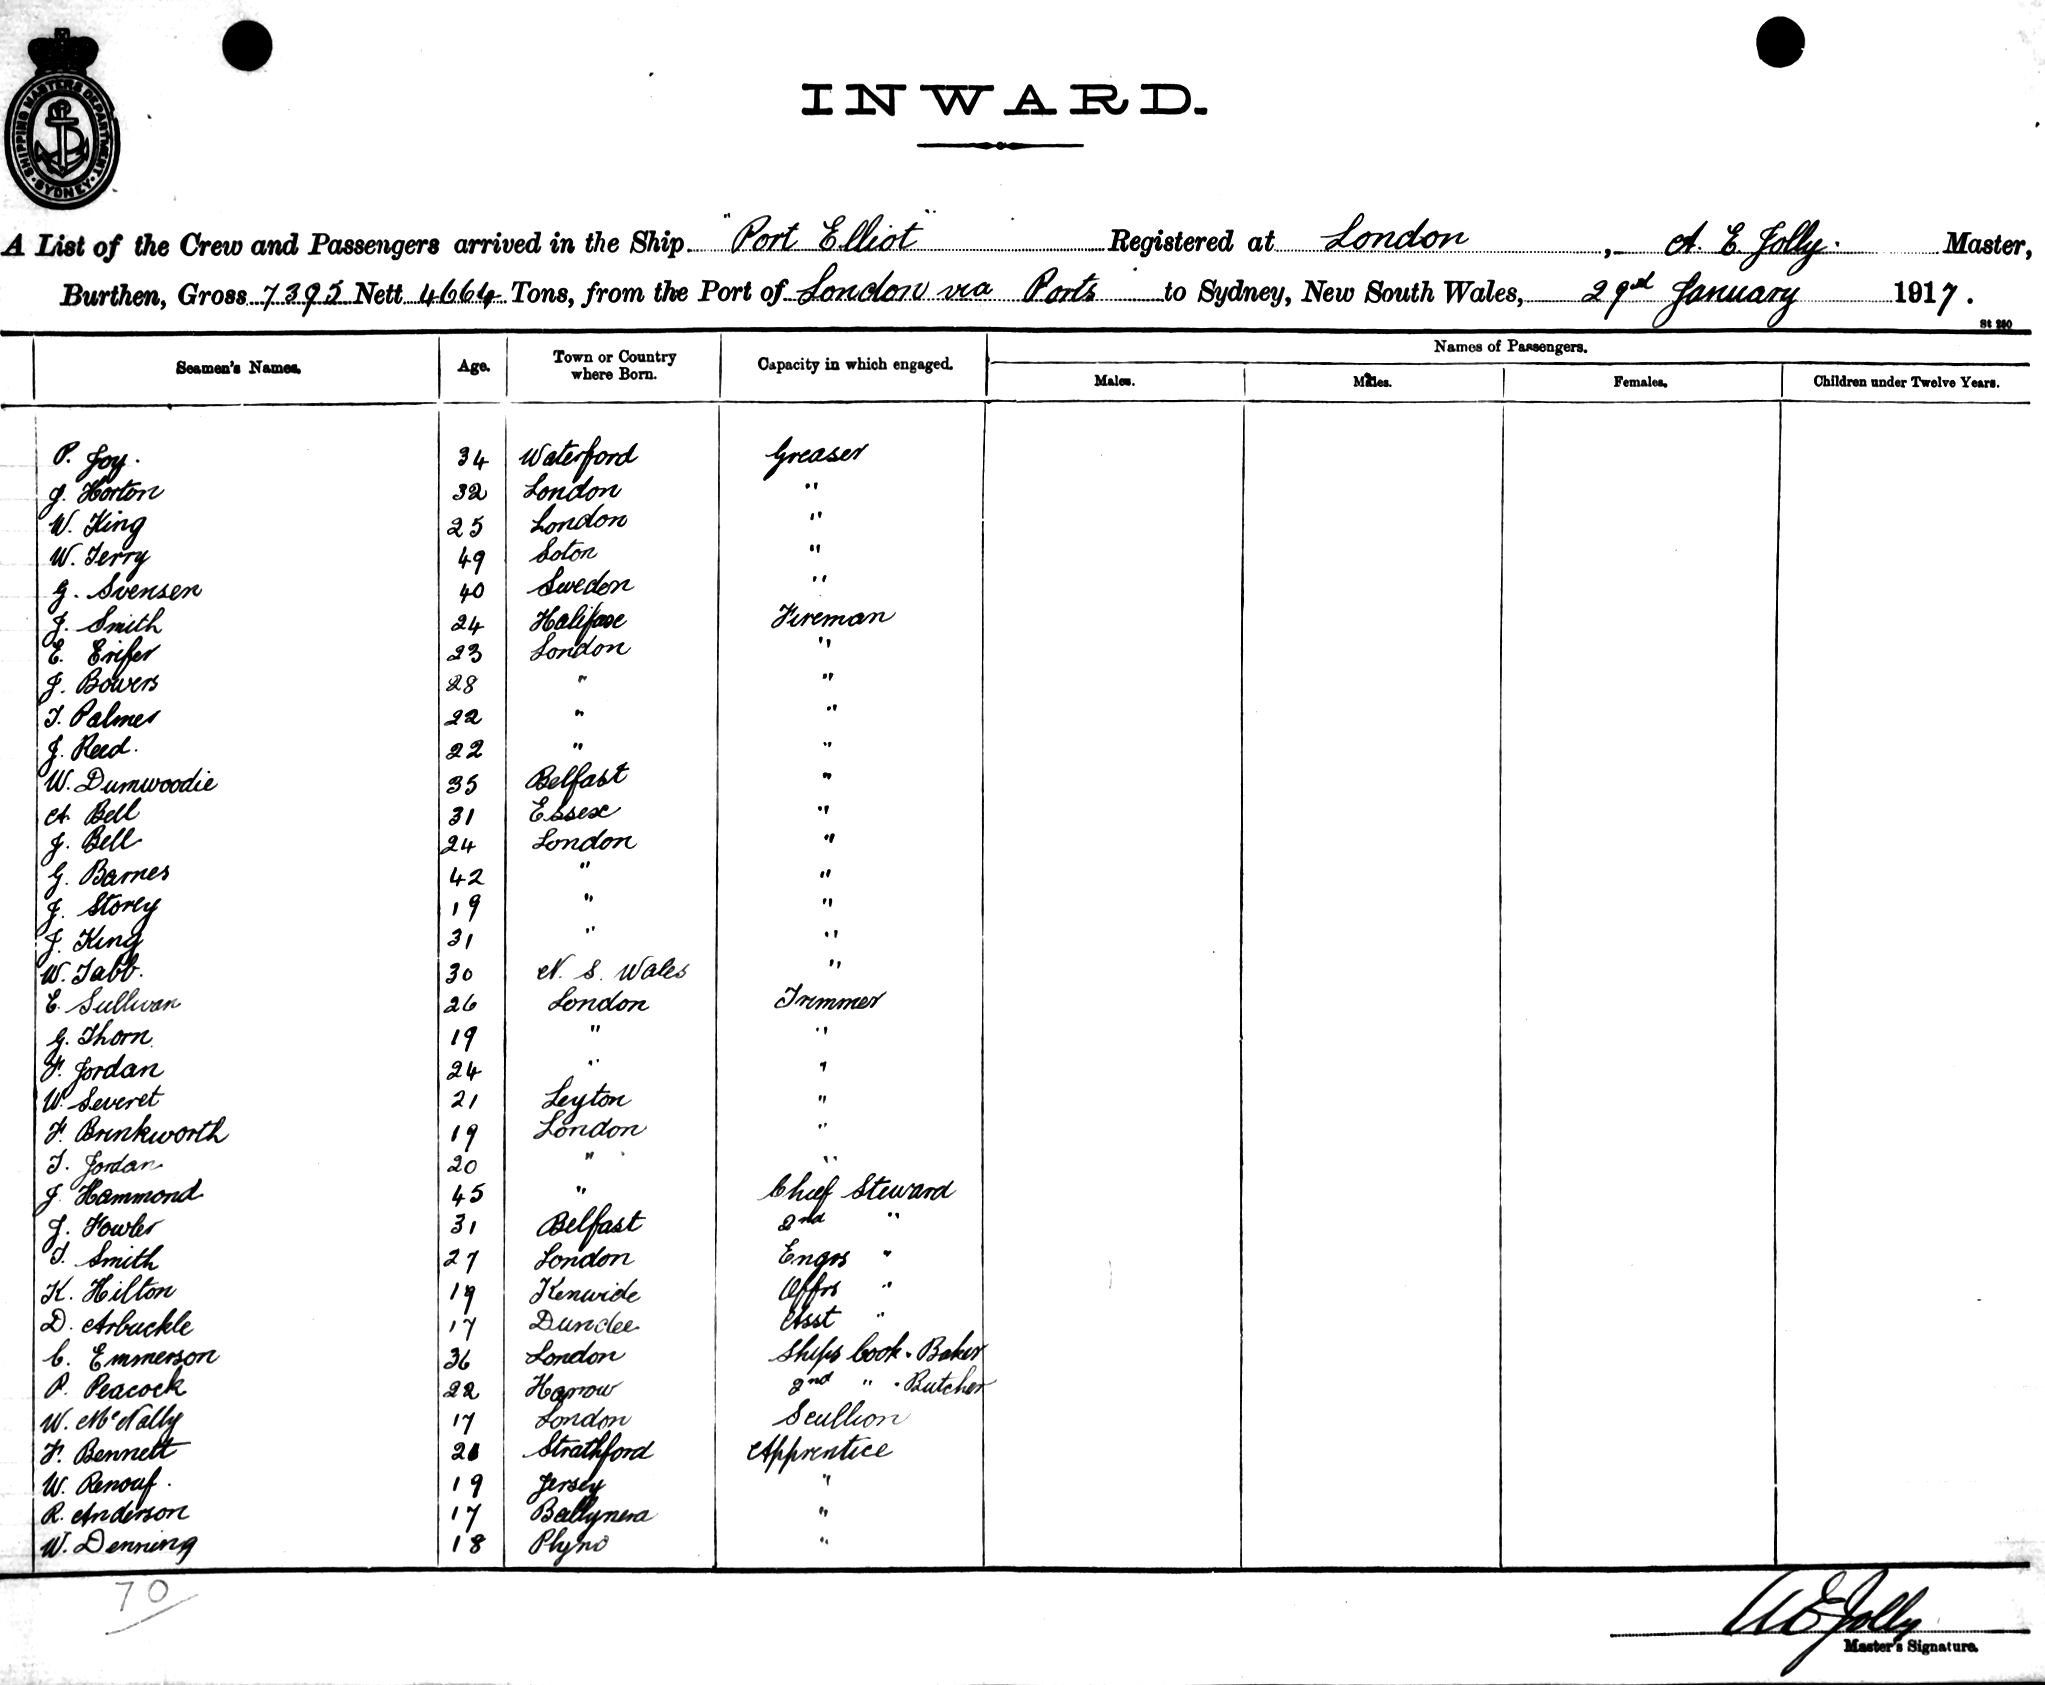 SHIPPING MASTERS DEPARTMENT · SYDNEY ·
INWARD.
A List of the Crew and Passengers arrived in the Ship "Port Elliot" Registered at London, A. E. Jolly. Master,
Burthen, Gross 7395 Nett 4664 Tons, from the Port of London via Ports to Sydney, New South Wales, 29nd January 1917.
St 250
Names of Passengers.
Seamen's Names. Age. Town or Country where Born. Capacity in which engaged. Males. Males. Females. Children under Twelve Years.
P. Joy. 34 Waterford Greaser
J. Horton 32 London "
W. King 25 London "
W. Terry 49 Soton "
G. Svensen 40 Sweden "
J. Smith 24 Halifax Fireman
E. 23 London "
J. Bowers 28 " "
T. Palmer 22 " "
J. Reed. 22 " "
W. Dumwoodie 35 Belfast "
A. Bell 31 Essex "
J. Bell 24 London "
G. Barnes 42 " "
J. Storey 19 " "
J. King 31 " "
W. Tabb. 30 N. S. Wales "
E. Sullivan 26 London Trimmer
G. Thorn 19 " "
F. Jordan 24 " "
W. Severet 21 Leyton "
F. Brinkworth 19 London "
T. Jordan 20 " "
J. Hammond 45 " Chief Steward
J. Fowler 31 Belfast 2nd "
T. Smith 27 London Engrs "
K. Hilton 19 Kenwide Offrs "
D. Arbuckle 17 Dundee Asst "
C. Emmerson 36 London Ships Cook . Baker
P. Peacock 22 Harrow 2nd " . Butcher
W. McNally 17 London Scullion
F. Bennett 21 Strathford Apprentice
W. Renouf. 19 Jersey "
R. Anderson 17 Ballynera "
W. Denning 18 "
70
A E Jolly
Master's Signature.